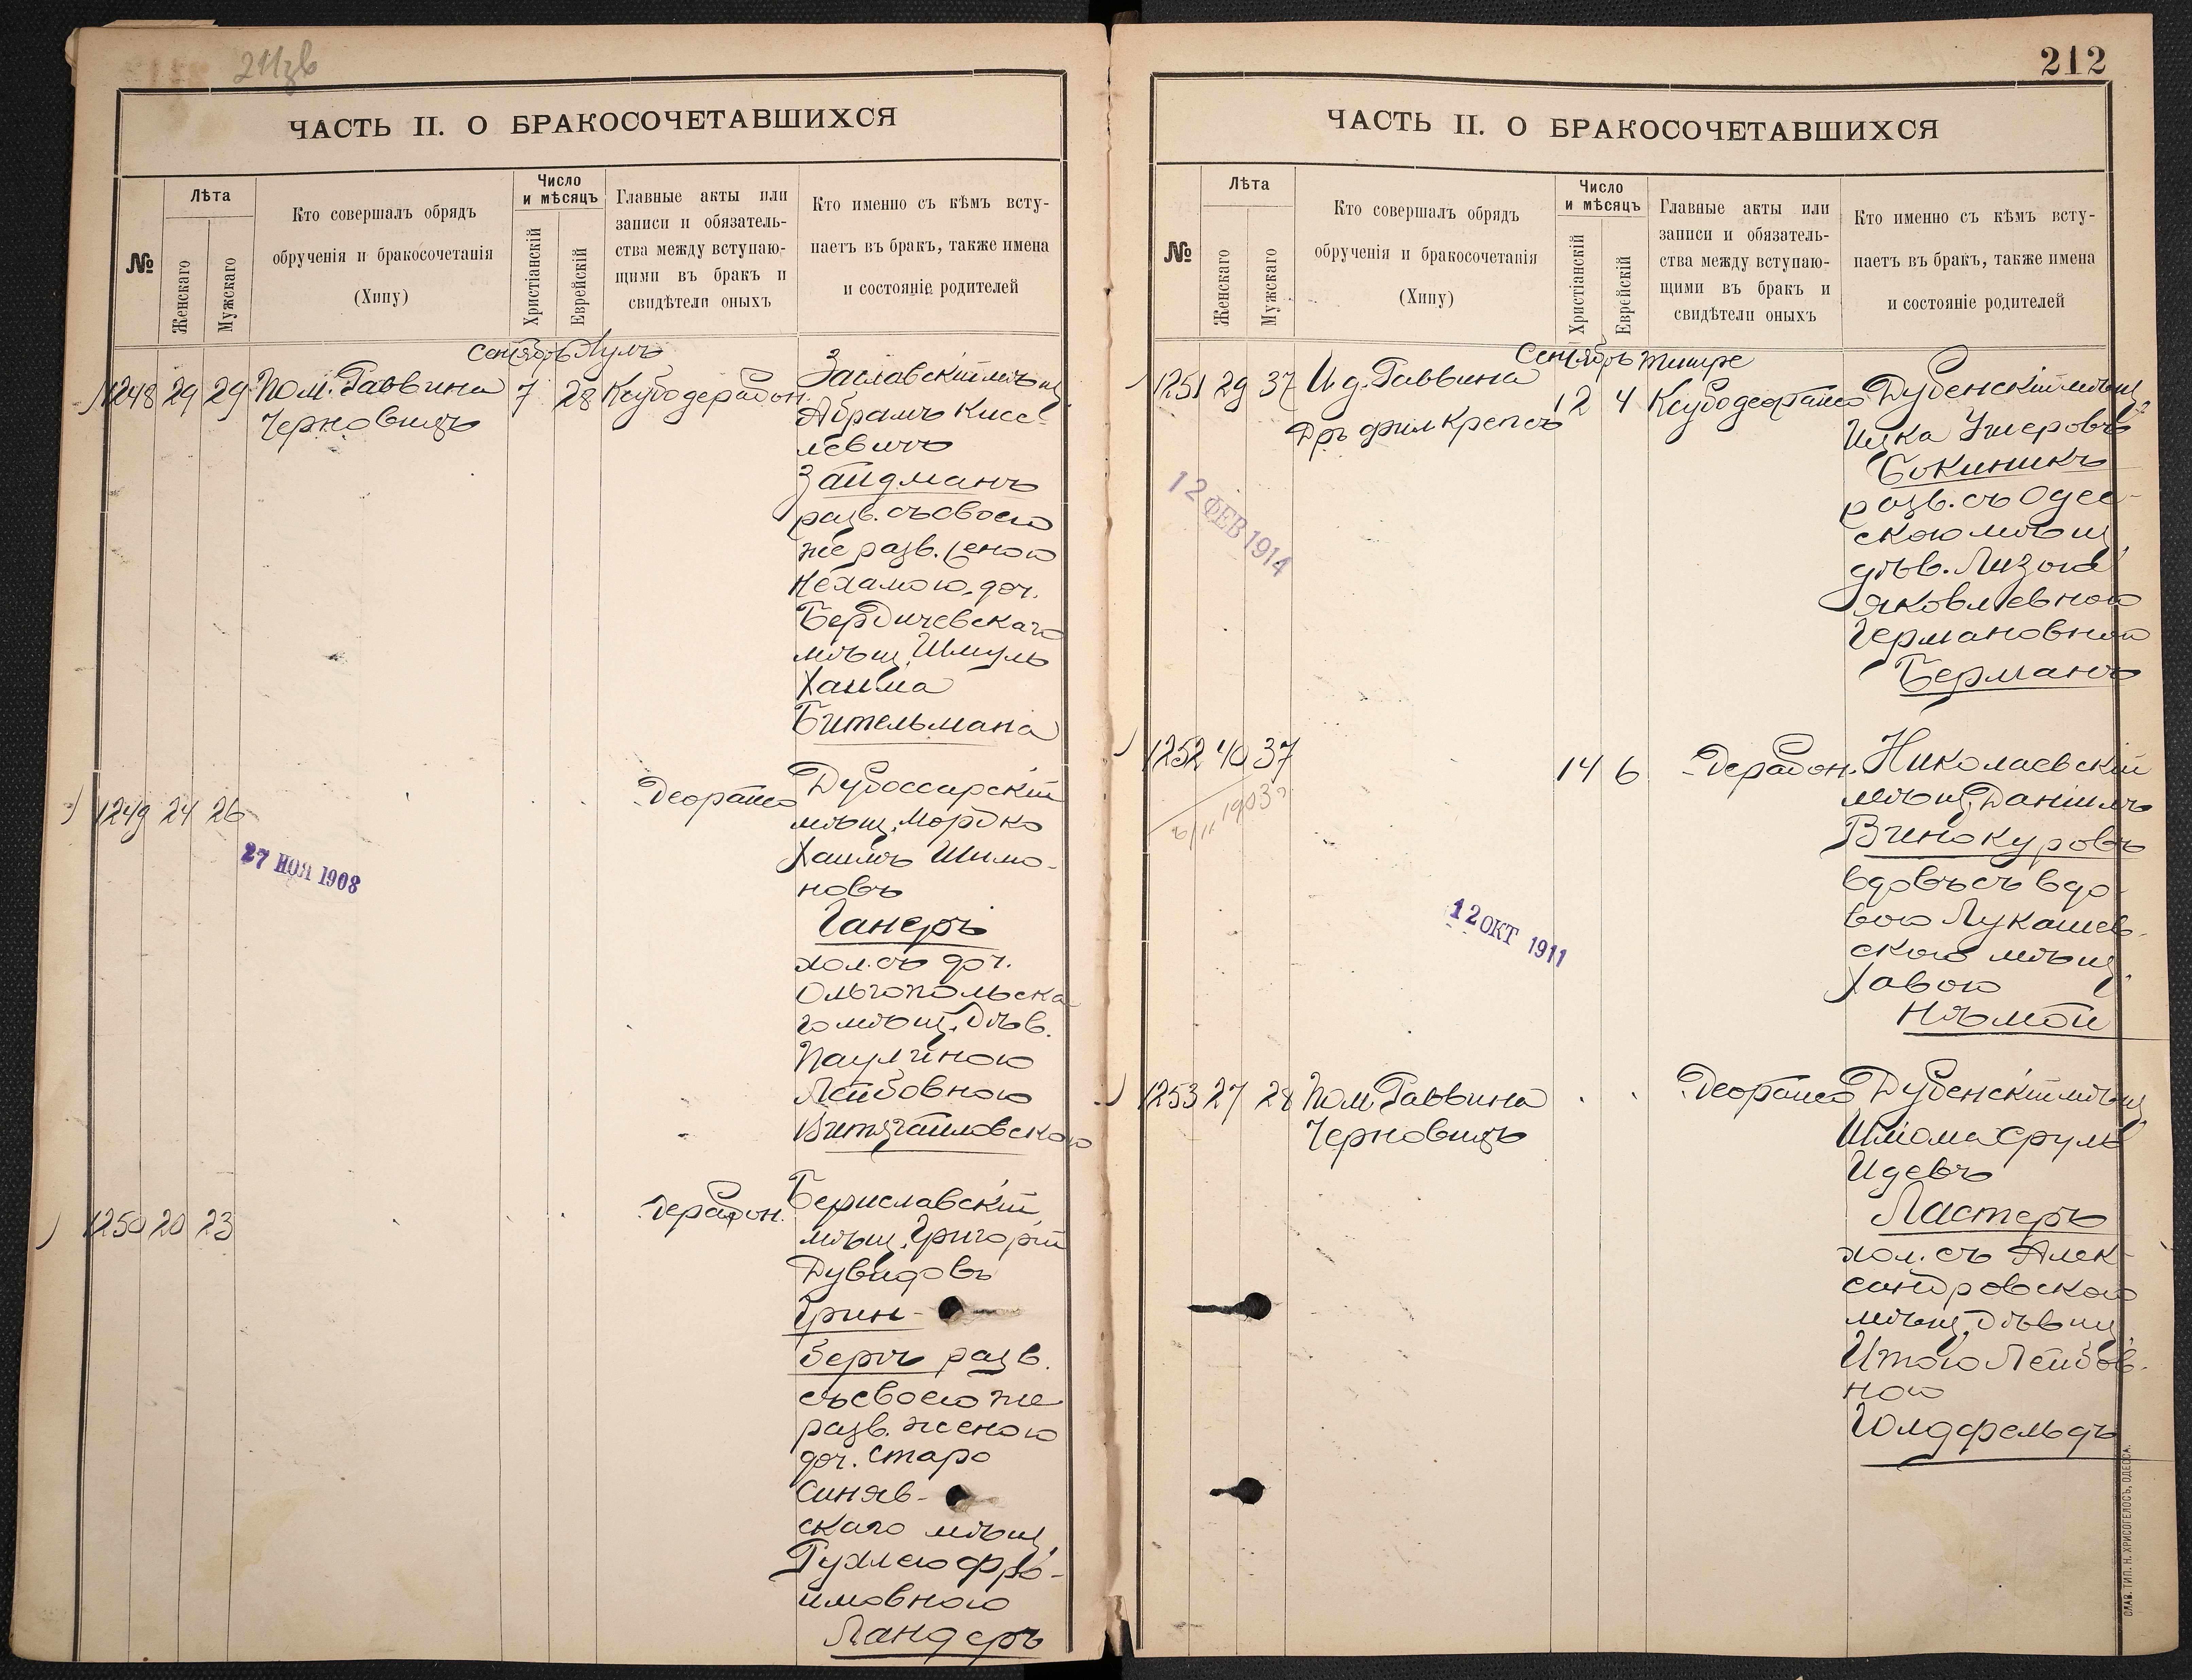 211зв
ЧАСТЬ II. О БРАКОСОЧЕТАВШИХСЯ
№
Лѣта
Женскаго
Мужскаго
Кто совершалъ обрядъ
обрученія и бракосочетанія
(Хипу)
Число
и мѣсяцъ
Христіанскій
Еврейскій
Главные акты или
записи и обязатель-
ства между вступаю-
щими въ бракъ и
свидѣтели оныхъ
Кто именно съ кѣмъ всту-
паетъ въ бракъ, также имена
и состояніе родителей
Сентябрь Аулъ
1248 29 29 Пом. Раввина 7 28 Ксубо дерабон.
Черновицъ
Заславскій мѣщ.
Абрамъ Кисе-
левичъ
Зайдманъ
разв. съ своею
же разв. женою
Нехамою, доч.
Бердичевскаго
мѣщ. Шмуль
Хаима
Бительмана
1249 24 26 Деорайсо
27 НОЯ 1908
Дубоссарскій
мѣщ. Мордко
Хаимъ Шимо-
новъ
Ганеръ
хол. съ доч.
Ольгопольска
го мѣщ. дѣв.
Паулиною
Лейбовною
1250 20 23 Дерабон.
Бериславскій
мѣщ. Григорій
Дувидовъ
Грин-
бергъ разв.
съ своею же
разв. женою
доч. Старо
Синяв-
скаго мѣщ.
Рухлею Фро-
имовною
Ландеръ
212
ЧАСТЬ II. О БРАКОСОЧЕТАВШИХСЯ
№
Лѣта
Женскаго
Мужскаго
Кто совершалъ обрядъ
обрученія и бракосочетанія
(Хипу)
Число
и мѣсяцъ
Христіанскій
Еврейскій
Главные акты или
записи и обязатель-
ства между вступаю-
щими въ бракъ и
свидѣтели оныхъ
Кто именно съ кѣмъ всту-
паетъ въ бракъ, также имена
и состояніе родителей
Сентябрь Тишре
1251 29 37 И д. Раввина 12 4 Ксубо деорайсо
Дръ фил Крепсъ
12 ФЕВ 1914
Дубенскій мѣщ.
Ицка Ушеровъ
Бокиникъ
разв. съ Одес-
скою мѣщ.
дѣв. Лизою
Яковлевною
Германовною
Берманъ
1252 40 37 14 6 Дерабон.
1903 г.
12 ОКТ 1911
Николаевскій
мѣщ. Даніилъ
Винокуровъ
вдовъ съ вдо-
вою Лукашев-
скою мѣщ.
Хавою
Нѣмой
1253 27 28 Пом Раввина Деорайсо
Черновицъ
Дубенскій мѣщ.
Шлома Срулъ
Идевъ
Ластеръ
хол. съ Алек-
сандровскою
мѣщ. дѣвиц.
Итою Лейбов-
ною
Голдфельдъ
СЛАВ. ТИП. Н. ХРИСОГЕЛОСЪ, ОДЕССА.